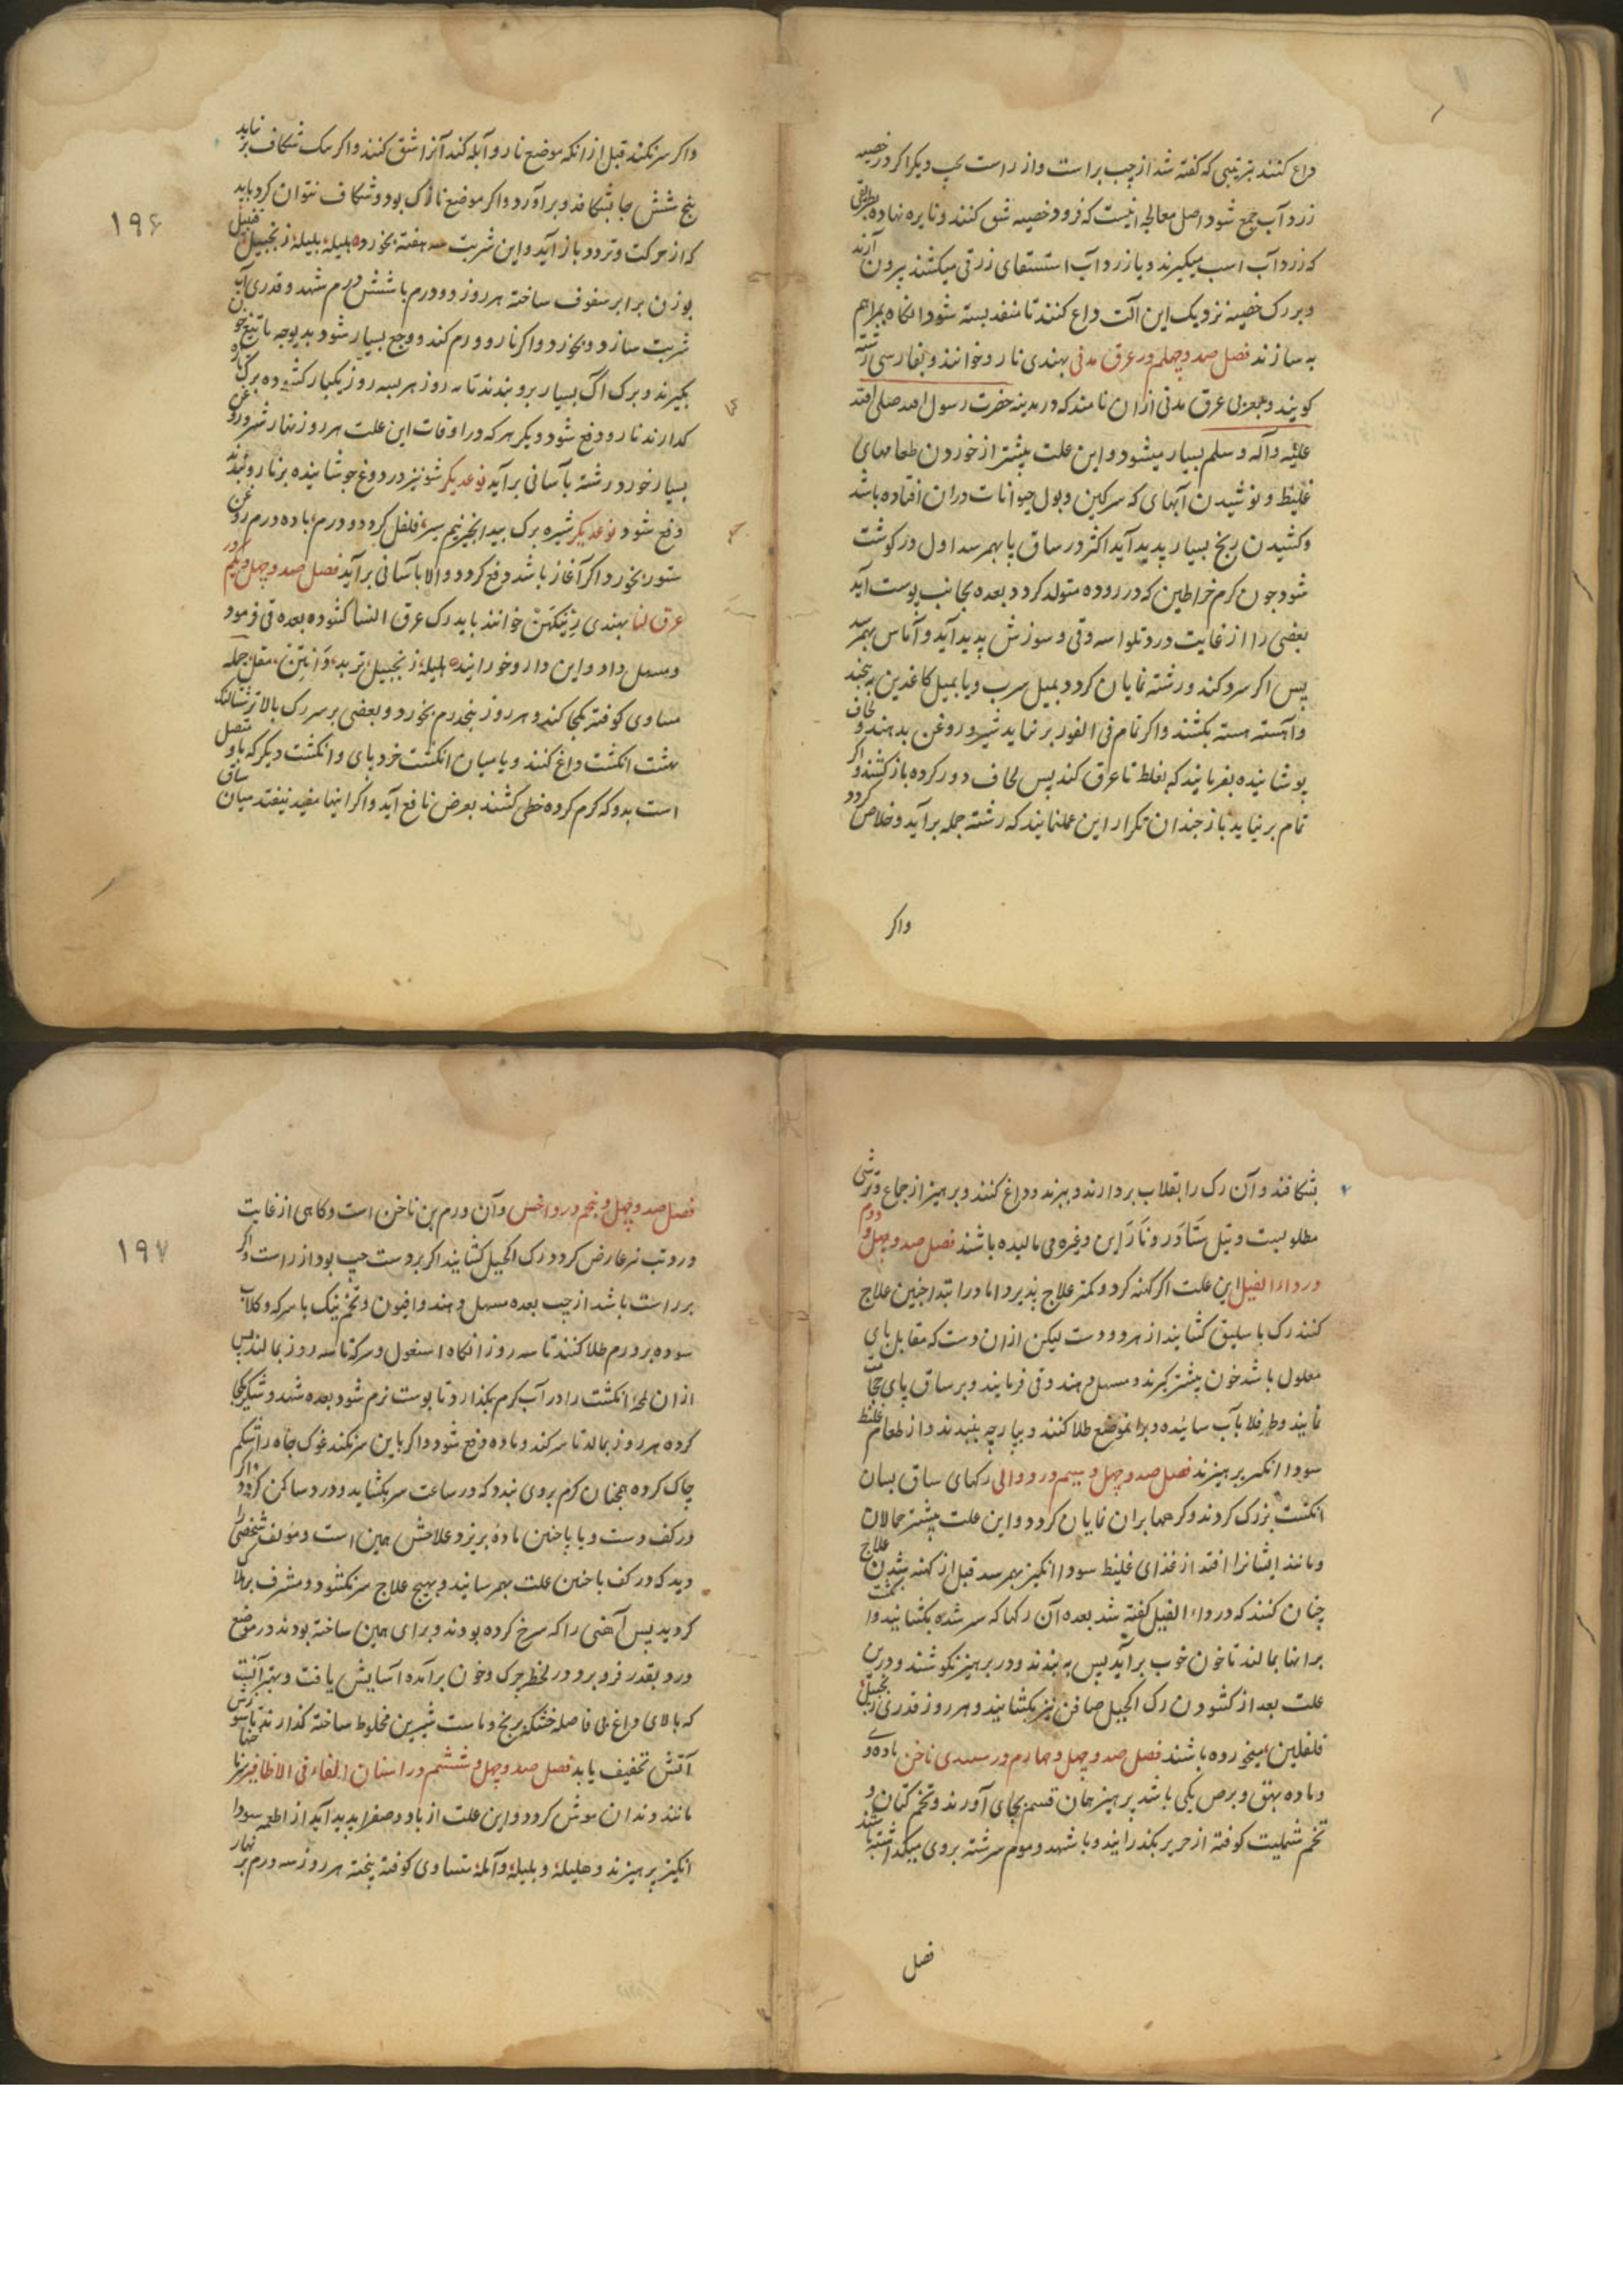 داغ کنند بترتیبی که گفته شد از چپ براست و از راست بچپ دیگر اکر در خصیه
زرد آب جمع شود اصل معالجه انیست که فرود خصیه شق کنند و نایزه نهاده بطریقی
که زرد آب اسب میکیرند و یا زرد آب استسقای زرقی میکشند بیرون آرند
و بر رک خصیه نزدیک این الت داغ کنند تا منفد بسته شود انکاه بمراهم
به سازند فصل صد و چهلم در عرق مدنی بهندی نارو خوانند و بفارسی رشته
کویند و بعربی عرق مدنی ازان نامند که در مدینه حضرت رسول الله صلی الله
علیه وآله وسلم بسیار میشود و این علت بیشتر از خوردن طعامهای
غلیظ و نوشیدن آبهای که سرکین و بول حیوانات دران افتاده باشد
و کشیدن رنج بسیار پدید آید اکثر در ساق پا بهم رسد اول در کوشت
شود چون کرم خراطین که در روده متولد کردد بعده بجانب پوست آید
بعضی را از غایت درد تلواسه و قی و سوزش پدید آید و آماس بهمرسد
پس اکر سر کند و رشته نمایان کردد بمیل سرب و یا بمیل کاغذین به پیچند
و آهسته هسته بکشند و اکر تمام فی الفور بر نیاید شیر و روغن بدهند و لحاف
پوشانیده بفرمایند که بغلطد تا عرق کند پس لحاف دور کرده باز کشند و اکر
تمام بر نیاید باز چندان تکرار این عمل نمایند که رشته جمله برآید و خلاص کردد
واکر
۱۹۶
واکر سر نکند قبل ازانکه موضع نارو آبله کند آنرا شق کنند و اکر یک شکاف بر نیاید
پنج شش جا بشکافد و برآورد و اکر موضع نازک بود و شکاف نتوان کرد باید
که از حرکت و تردد باز آید و این شربت سه هفته بخورد هلیله بلیله زنجبیل فلفل
بوزن برابر سفوف ساخته هر روز دو درم با شش درم شهد و قدری آب
شربت سازد و بخورد و اکر نارو ورم کند و وجع بسیار شود
بکیرند و برک آک بسیار برو بندند تا سه روز هر سه روز یکبار کشوده برک تازه
کدارند نارو دفع شود دیکر هر که در اوقات این علت هر روز نهار شیر و روغن
بسیار خورد رشته بآسانی برآید نوعدیکر شونیز در دوغ جوشانیده بر نارو بندند
دفع شود نوعدیکر شیره برک بید انجیر نیم سیر فلفل کرد دو درم با ده درم روغن
ستور بخورد اکر آغاز باشد دفع کردد والا بآسانی برآید فصل صد و چهل و یکم در
عرق لنسا بهندی خوانند باید رک عرق النسا کشوده بعده قی فرمود
و مسهل داد و این دارو خورانند هلیله زنجبیل تربد مقل جمله
مساوی کوفته یکجا کند و هر روز پنجدرم بخورد و بعضی بر سر رک بالا تر شتالنک
هشت انکشت داغ کنند و یا میان انکشت خرد پای و انکشت دیکر که باو متصل
است بدوکه کرم کرده خطی کشند بعرض نافع آید و اکر اینها مفید نیفتد میان ساق
بشکافند و آن رک را بقلاب بردارند و ببرند و داغ کنند و پرهیز از جماع و ترشی
مطلوبست و تیل ستاور و نراین وغیره می مالیده باشند فصل صد و چهل و دوم
در داء الفیل این علت اکر کهنه کردد کمتر علاج پذیرد اما در ابتدا چنین علاج
کنند رک باسلیق کشایند از هر دو دست لیکن ازان دست که مقابل پای
معلول باشد خون بیشتر کیرند و مسهل دهند و قی فرمایند و بر ساق پای حجامت
نمایند و طرفلا بآب سائیده و برانموضع طلا کنند و بپارچه بندند و از طعام غلیظ
سودا انکیز پرهیزند فصل صد و چهل و سیم در دوالی رکهای ساق بسان
انکشت بزرک کردند و کرهها بران نمایان کردد و این علت بیشتر حمالان
و مانند ایشانرا افتد از غذای غلیظ سودا انکیز بهم رسد قبل از کهنه شدن علاج
چنان کنند که در داء الفیل کفته شد بعده آن رکها که سر شده بکشایند و انکشت
برانها بمالند تا خون خوب برآید پس به بندند و در پرهیز نکوشند و درین
علت بعد از کشودن رک اکحیل صافن نیز بکشایند و هر روز قدری زنجبیل
فلفلین میخورده باشند فصل صد و چهل و چهارم در سپیدی ناخن ماده وی
و ماده بهق و برص یکی باشد پرهیز همان قسم بجای آورند و تخم کتان و
تخم شملیت کوفته از حریر بکذرانند و با شهد و موم سرشته بروی میکذاشته باشند
فصل
۱۹۷
فصل صد و چهل و پنجم در داخس و آن ورم بن ناخن است و کاهی از غایت
درد تب نیز عارض کردد رک اکحیل کشایند اکر بر دست چپ بود از راست و اکر
بر راست باشد از چپ بعده مسهل دهند و افیون و تخم بنک با سرکه و کلاب
سوده بر ورم طلا کنند تا سه روز انکاه اسبغول و سرکه تا سه روز بمالند پس
ازان لمحهٔ انکشت را در آب کرم بکذارد تا پوست نرم شود بعده شهد و شکر یکجا
کرده هر روز بمالد تا سر کند و ماده دفع شود و اکر باین سر نکند غوک چاه را شکم
چاک کرده همچنان کرم بروی بندد که در ساعت سر بکشاید و درد ساکن کردد و اکر
در کف دست و یا پا چنین ماده بریزد علاجش همین است و مولف شخصی را
دید که در کف پا چنین علت بهم رسانید و بهیچ علاج سر نکشود و مشرف بر هلاک
کردید پس آهنی را که سرخ کرده بودند و برای همین ساخته بودند در موضع
درد بقدر فرو برد در لحظه چرک و خون برآمده آسایش یافت و بهتر آنست
که بالای داغ بی فاصله خشکه برنج و ماست شیرین مخلوط ساخته کذارند تا سوزش
آتش تخفیف یابد فصل صد و چهل و ششم در اسنان الفاء فی الاظافیر ناخنها
مانند دندان موش کردد و این علت از باد و صفرا پدید آید از اطعمه سودا
انکیز پرهیزند و هلیله و بلیله و آمله مساوی کوفته پخته هر روز سه درم بر نهار